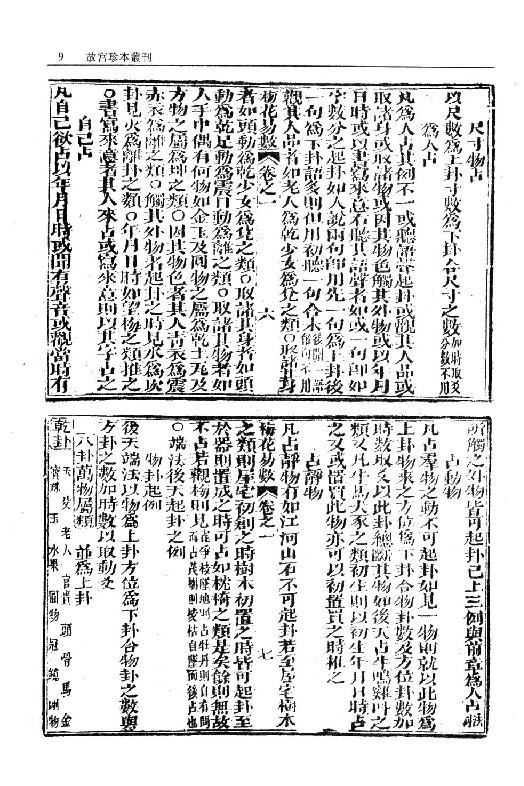 9 故宮珍本叢刊
尺寸物占
以尺數爲上卦寸數爲下卦合尺寸之數加時取爻分數不用
爲人占
凡爲人占其例不一或聽語聲起卦或觀其人品或
取諸身或取諸物或因其物色觸其外物或以年月
日時或以書寫來意右聽其語聲者如或一句即如
字數分之起卦如人說兩句即用先一句爲上卦後
一句爲下卦語多則但用初聽一句合末後問一語餘句不用
觀其人品者如老人爲乾少女爲兌之類○取諸其身
梅花易數 卷之一 六
者如頭動爲乾足動爲震目動爲離之類○取諸其物者如
人手中偶有何物如金玉及圓物之屬爲乾土瓦及
方物之屬爲坤之類○因其物色者其人青衣爲震
赤衣爲離之類○觸其外物者起卦之時見水爲坎
卦見火爲離卦之類○年月日時如望梅之類推之
○書寫來意者其人來占或寫來意則以其字占之
自己占
凡自己欲占以年月日時或聞有聲音或觀當時有
所觸之外物皆可起卦已上三例與前章爲人占法同
占動物
凡占羣物之動不可起卦如見一物則就以此物爲
上卦物來之方位爲下卦合物卦數及方位卦數加
時數取爻以此卦總斷其物如後天占牛鳴雞叫之
類又凡牛馬犬豕之類初生則以初生年月日時占
之又或置買此物亦可以初置買之時推之
占靜物
凡占靜物有如江河山石不可起卦若至屋宅樹木
梅花易數 卷之一 七
之類則屋宅初創之時樹木初置之時皆可起卦至
於器則置成之時可占如枕椅之類是矣餘則無故
不占若觀梅則見雀爭枝墜地而占牡丹則自有問而占茂樹則枝枯自墜而後占也
○端法後天起卦之例
物卦起例
後天端法以物爲上卦方位爲下卦合物卦之數與
方卦之數加時數以取動爻
八卦萬物屬類 並爲上卦
乾卦 天 父 老人 官貴 頭 骨 馬 金
寶珠 玉 水果 圓物 冠 鏡 剛物